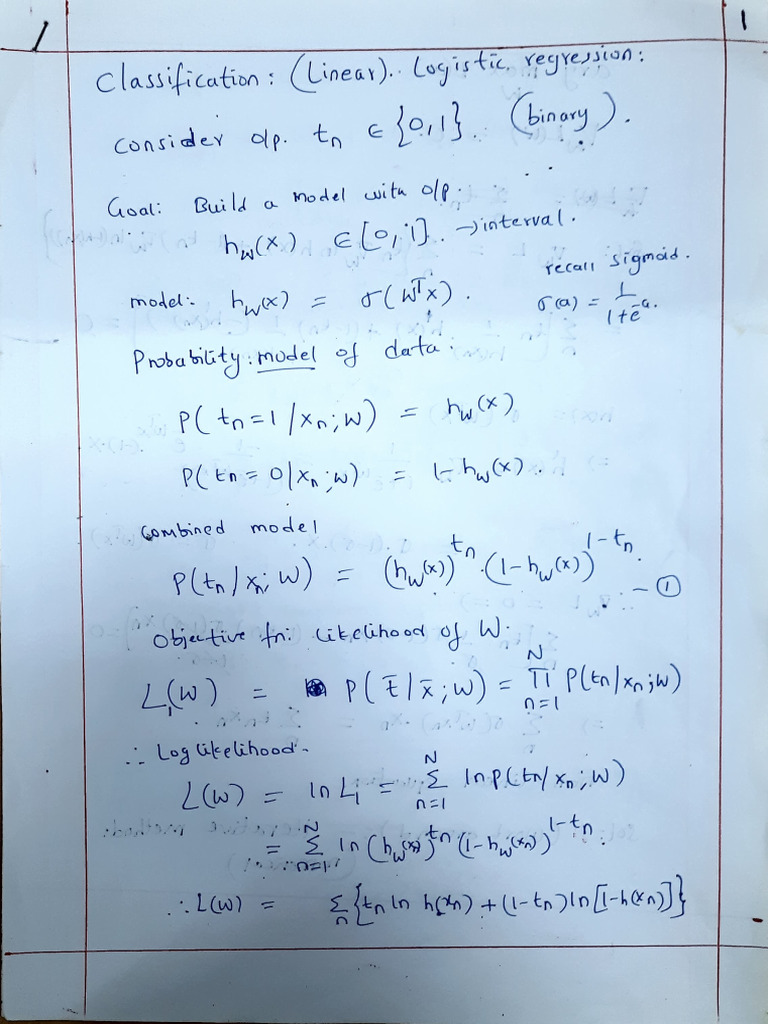 1
Classification: (Linear). Logistic regression:
Consider o/p. tn ∈ {0,1}. (binary).
Goal: Build a model with o/p.
hw(x) ∈ [0,1]. → interval.
recall sigmoid.
model: hw(x) = σ(Wᵀx). σ(a) = 1/(1+e⁻ᵃ).
Probability model of data:
P(tn=1/xn;w) = hw(x)
P(tn=0/xn;w) = 1-hw(x).
Combined model
P(tn/xn;W) = (hw(x))^tn.(1-hw(x))^1-tn. -①
Objective fn: Likelihood of W.
L1(W) = P(t̄/x̄;w) = Π n=1 N P(tn/xn;w)
∴ Log likelihood-
L(w) = ln L1 = Σ n=1 N ln P(tn/xn;W)
= Σ n=1 N ln (hw(xn))^tn (1-hw(xn))^1-tn.
∴ L(w) = Σn {tn ln h(xn) + (1-tn) ln [1-h(xn)]}